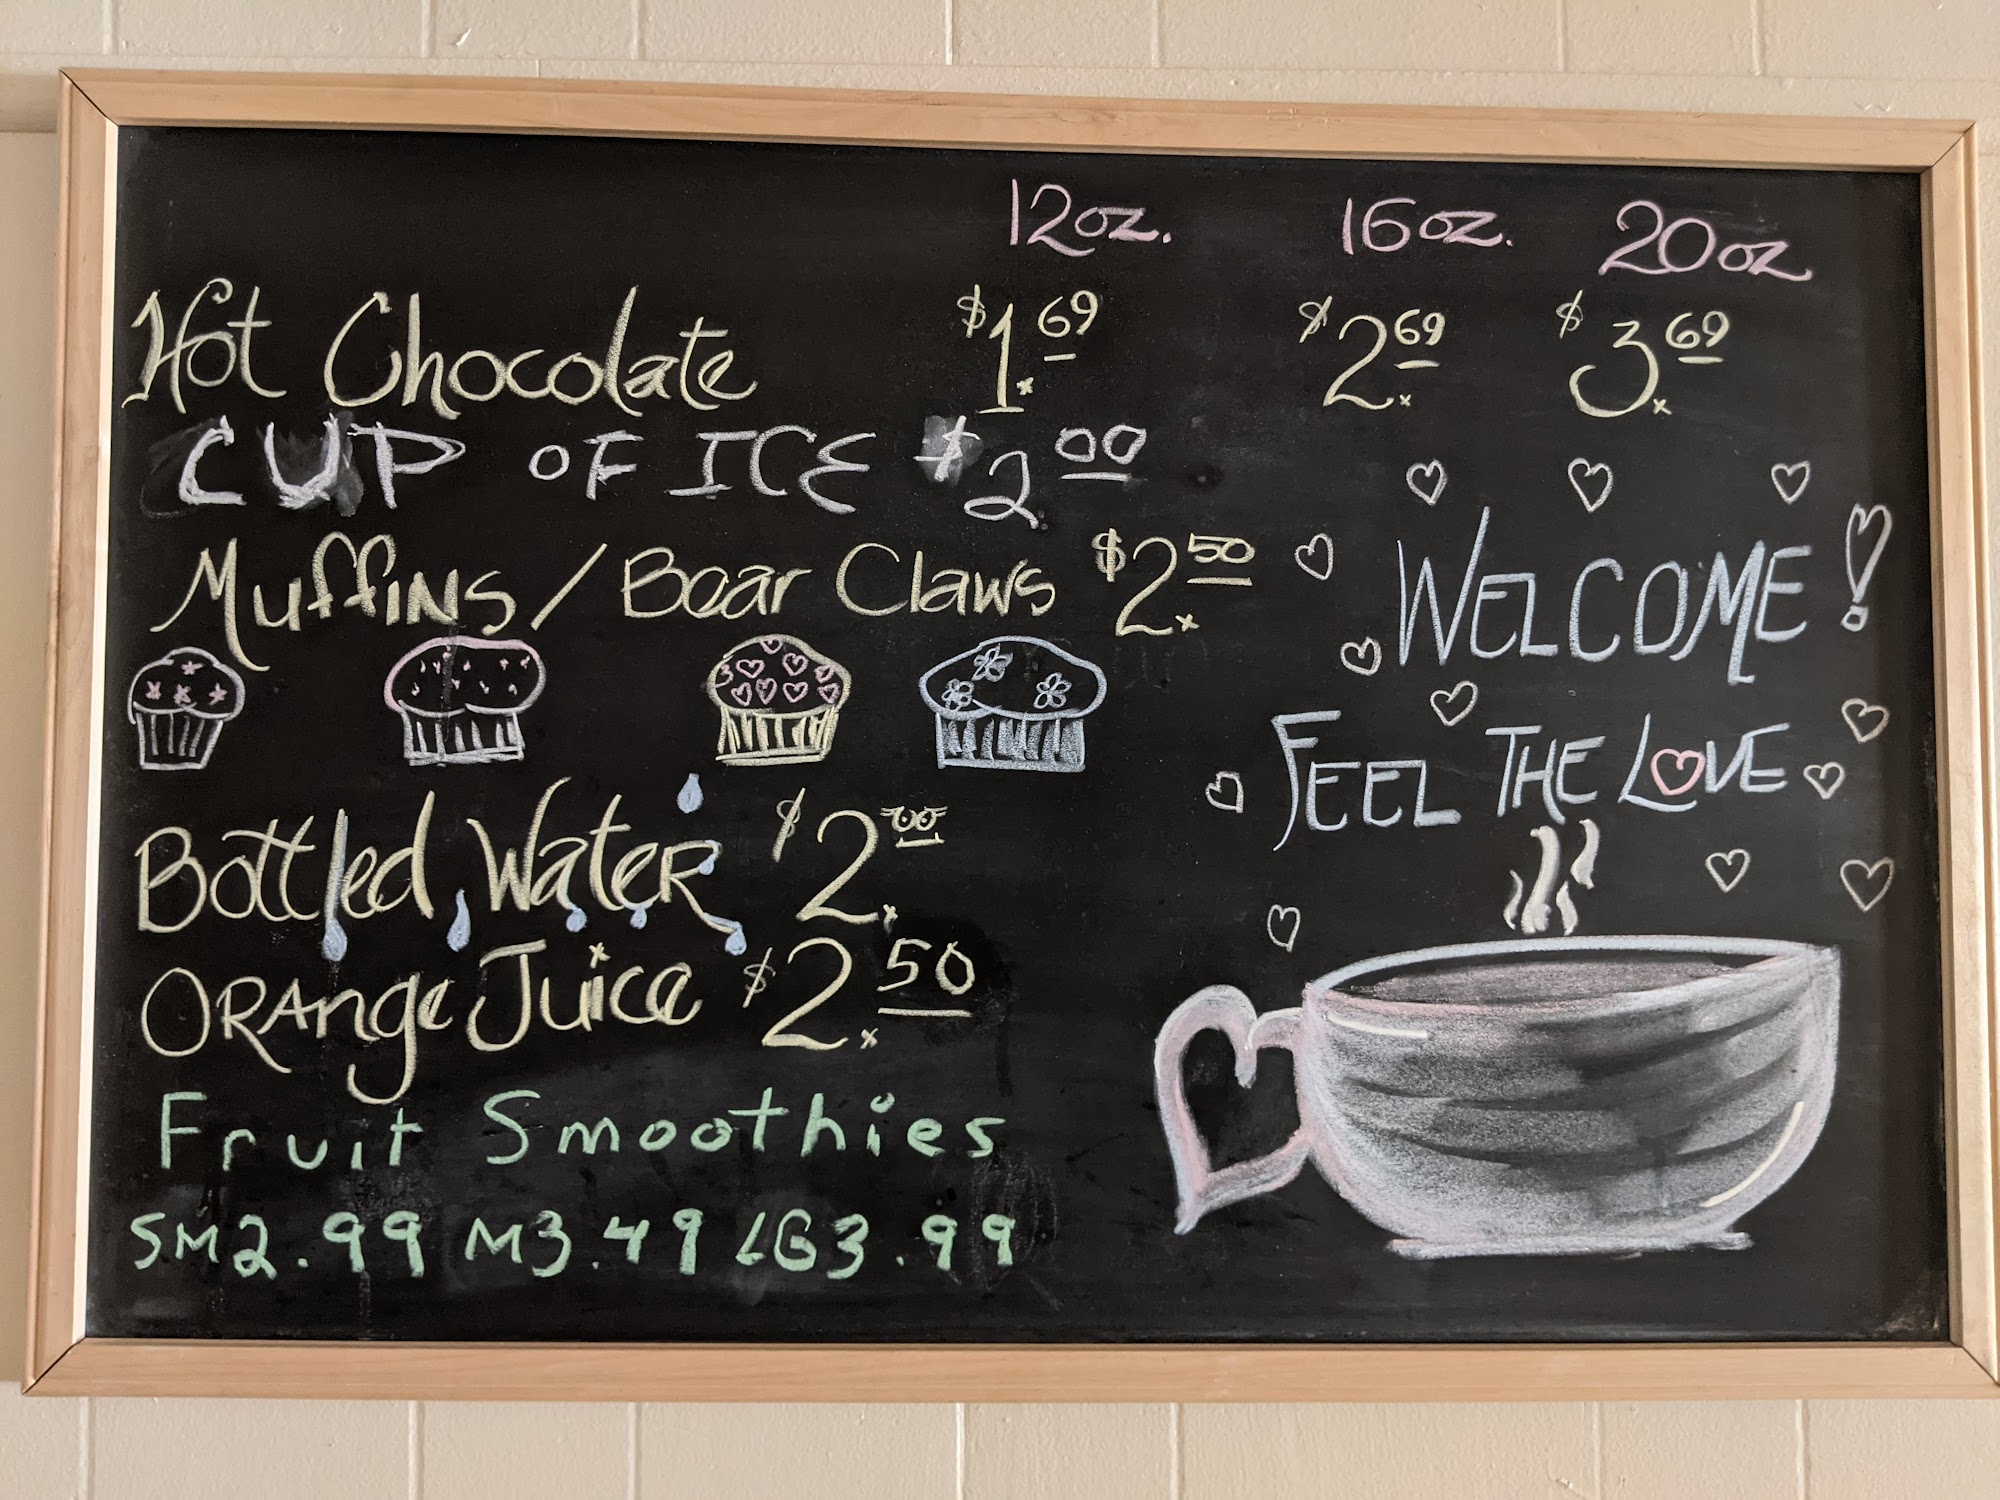 12oz. 16oz. 20oz
Hot Chocolate $1.69 $2.69 $3.69
CUP OF ICE $2.00
Muffins / Bear Claws $2.50
WELCOME!
FEEL THE LOVE
Bottled Water $2.00
Orange Juice $2.50
Fruit Smoothies
SM2.99 M3.49 LG3.99